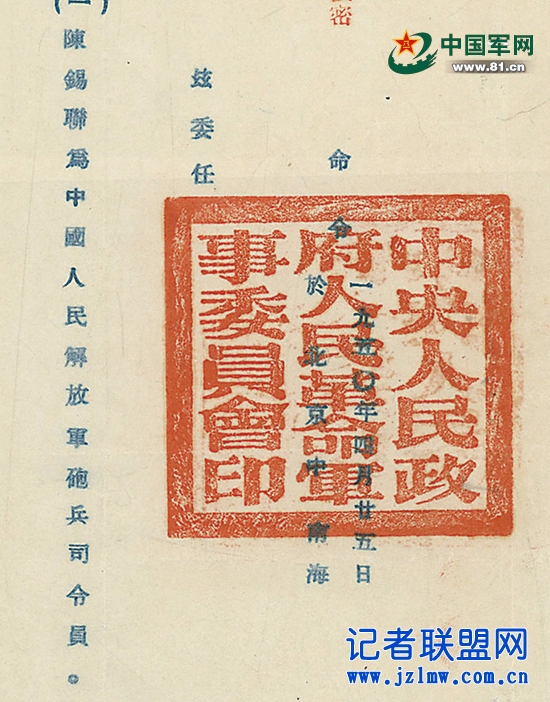 中国军网
www.81.cn
密
命令
一九五〇年四月廿五日
於北京中南海
中央人民政
府人民革命軍
事委員會印
茲委任
陳錫聯爲中國人民解放軍砲兵司令員。
记者联盟网
www.jzlmw.com.cn